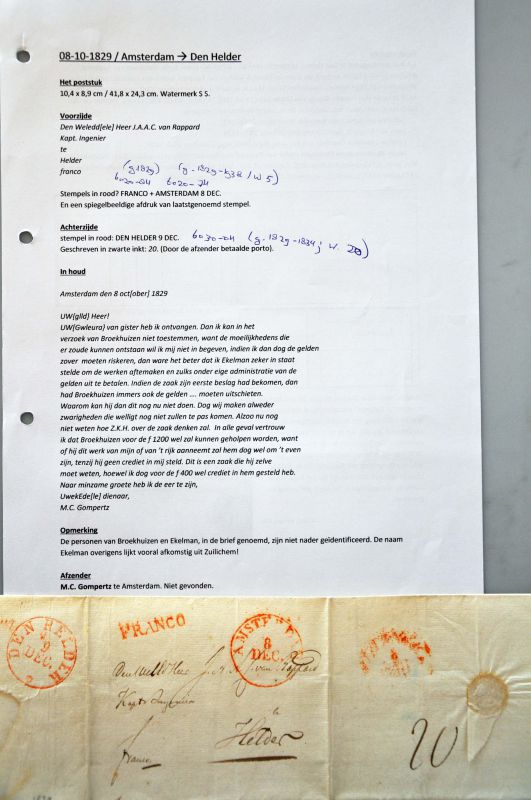 08-10-1829 / Amsterdam → Den Helder
Het poststuk
10,4 x 8,9 cm / 41,8 x 24,3 cm. Watermerk S S.
Voorzijde
Den Weledd[ele] Heer J.A.A.C. van Rappard
Kapt. Ingenier
te
Helder
franco
(g 1829) (g. 1829-1832 / W 5)
6020-04 6020-24
Stempels in rood? FRANCO + AMSTERDAM 8 DEC.
En een spiegelbeeldige afdruk van laatstgenoemd stempel.
Achterzijde
stempel in rood: DEN HELDER 9 DEC. 6030-04 (g. 1829-1834; w. 20)
Geschreven in zwarte inkt: 20. (Door de afzender betaalde porto).
In houd
Amsterdam den 8 oct[ober] 1829
UW[glld) Heer!
UW(Gwleura) van gister heb ik ontvangen. Dan ik kan in het
verzoek van Broekhuizen niet toestemmen, want de moeilijkhedens die
er zoude kunnen ontstaan wil ik mij niet in begeven, indien ik dan dog de gelden
zover moeten riskeren, dan ware het beter dat ik Ekelman zeker in staat
stelde om de werken aftemaken en zulks onder eige administratie van de
gelden uit te betalen. Indien de zaak zijn eerste beslag had bekomen, dan
had Broekhuizen immers ook de gelden .... moeten uitschieten.
Waarom kan hij dan dit nog nu niet doen. Dog wij maken alweder
zwarigheden die welligt nog niet zullen te pas komen. Alzoo nu nog
niet weten hoe Z.K.H. over de zaak denken zal. In alle geval vertrouw
ik dat Broekhuizen voor de f 1200 wel zal kunnen geholpen worden, want
of hij dit werk van mijn of van 't rijk aanneemt zal hem dog wel om 't even
zijn, tenzij hij geen crediet in mij steld. Dit is een zaak die hij zelve
moet weten, hoewel ik dog voor de f 400 wel crediet in hem gesteld heb.
Naar minzame groete heb ik de eer te zijn,
UwekEde[le] dienaar,
M.C. Gompertz
Opmerking
De personen van Broekhuizen en Ekelman, in de brief genoemd, zijn niet nader geïdentificeerd. De naam
Ekelman overigens lijkt vooral afkomstig uit Zuilichem!
Afzender
M.C. Gompertz te Amsterdam. Niet gevonden.
DEN HELDER
9
DEC.
2
FRANCO
AMSTE
8
DEC.
van Rappard
Helder
franco
20